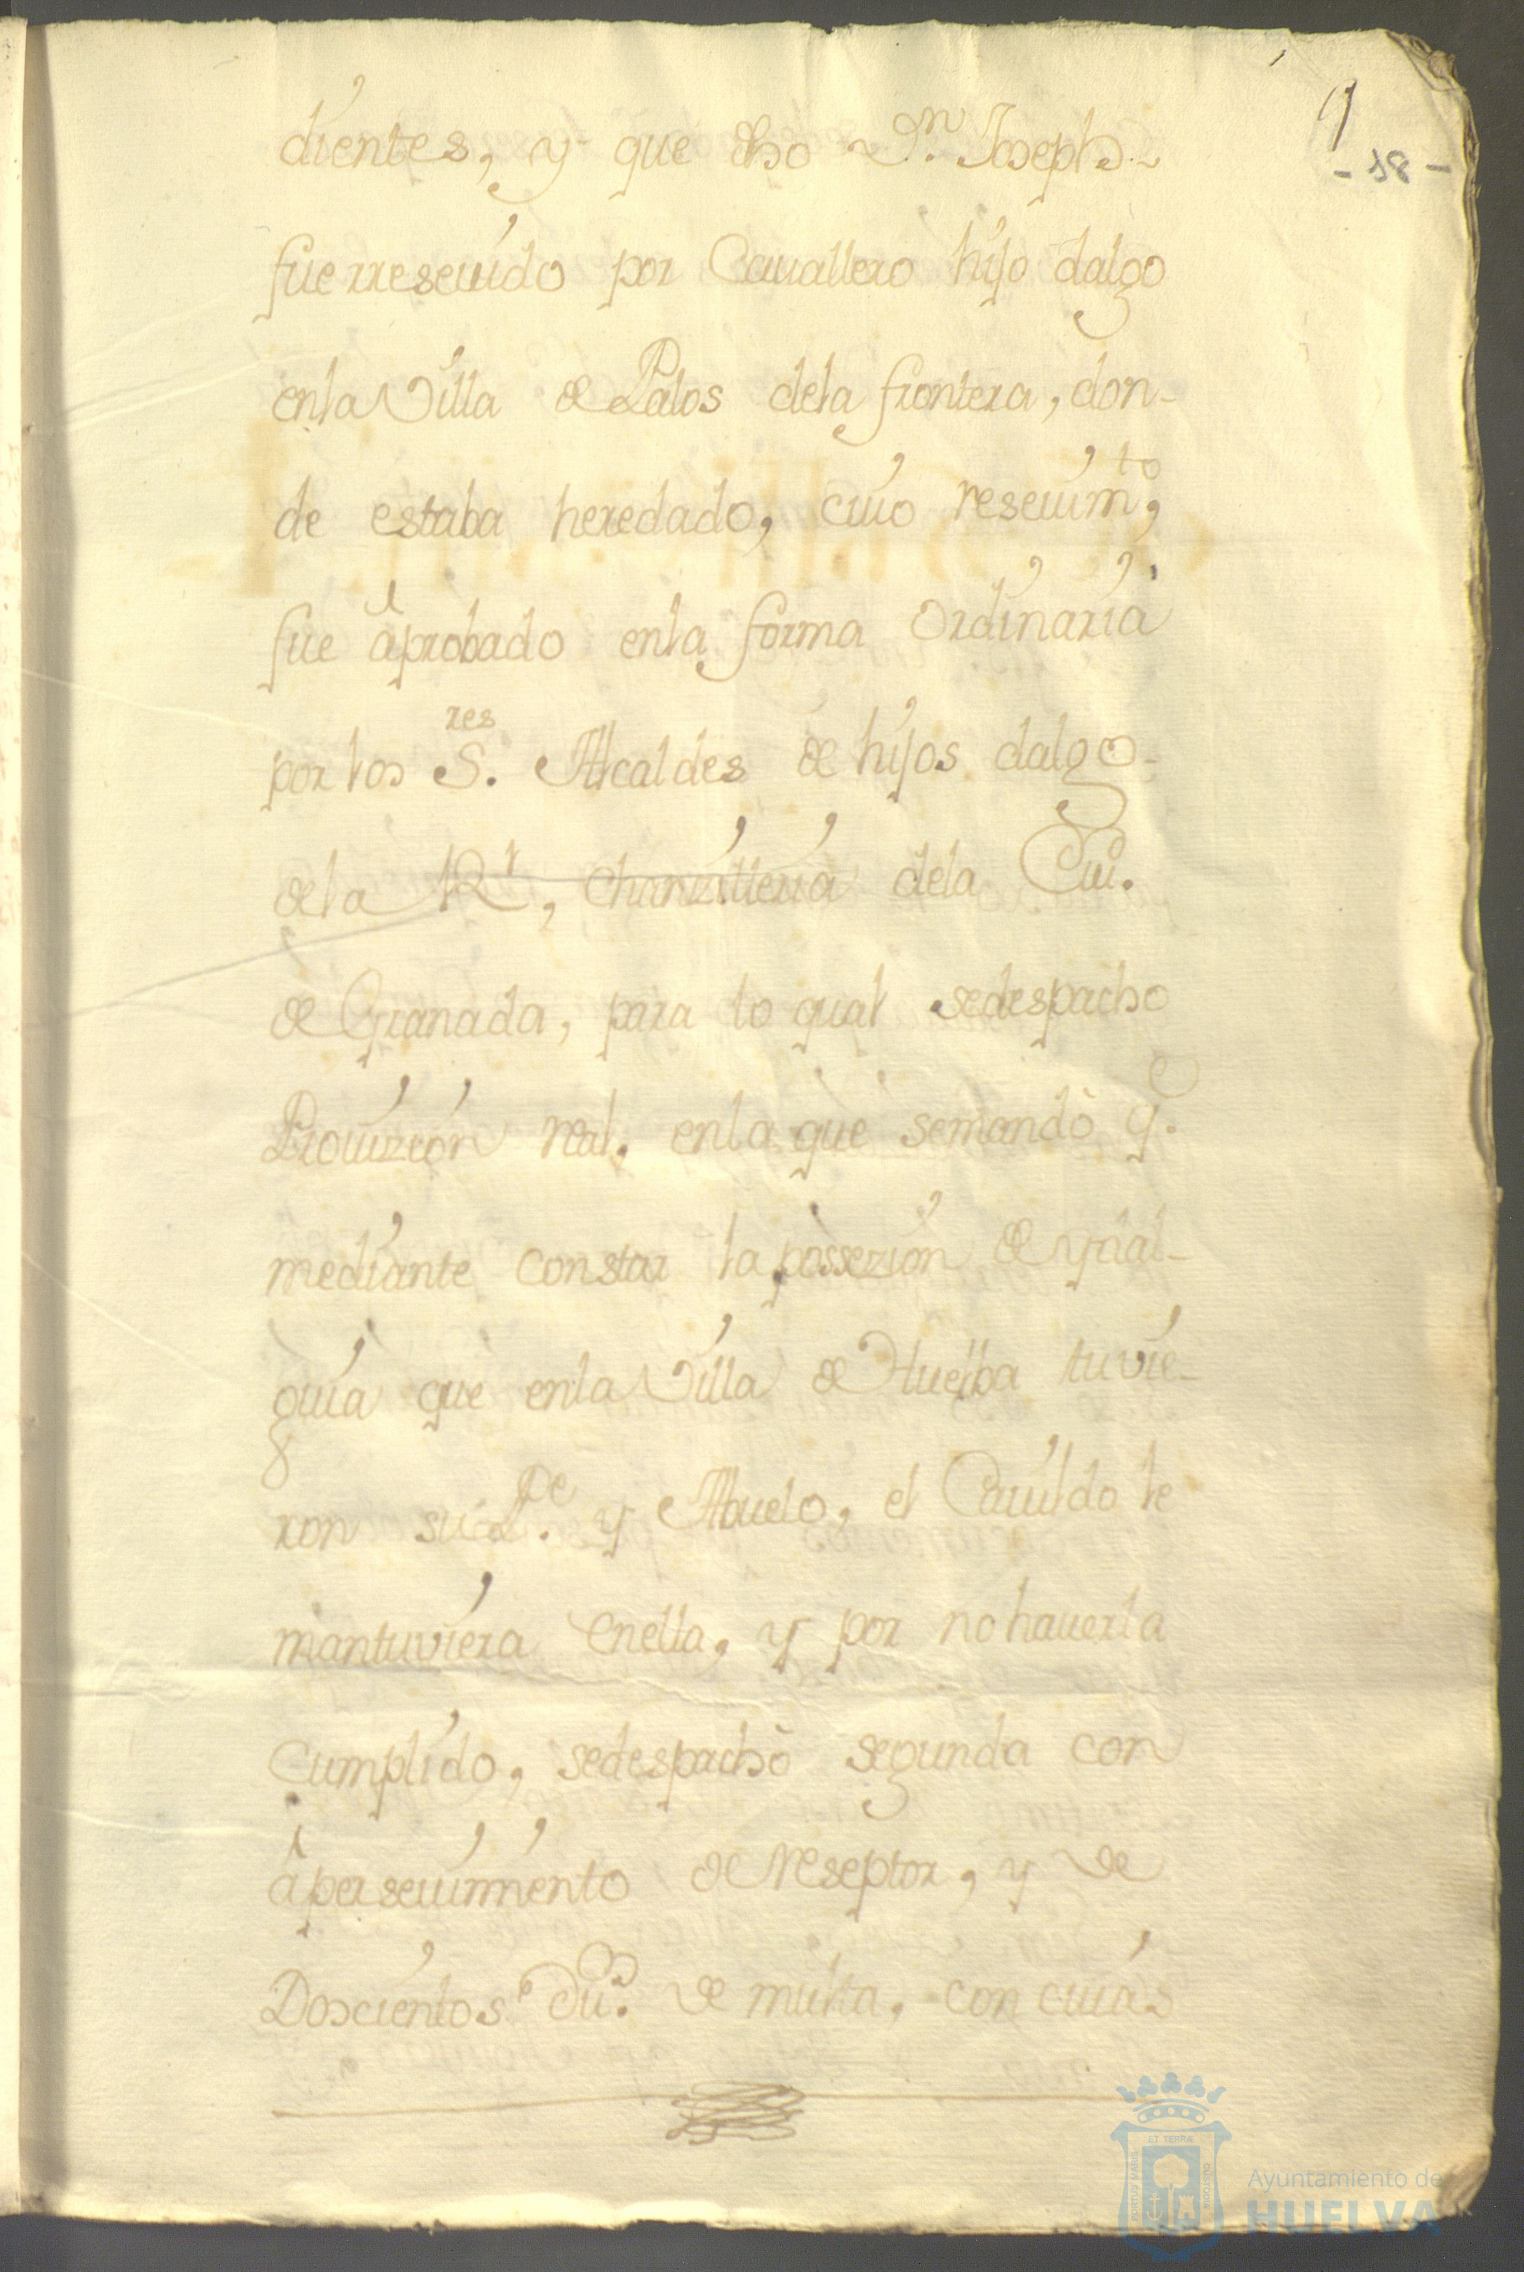 9
- 18 -
dientes, y que dho D.n Joseph
fue rreseuido por Cauallero hijo dalgo
enla Villa de Palos dela frontera, don-
de estaba heredado, cuio reseuim.to,
fue âprobado enla forma Ordinaria
por los S.res Alcaldes de hijos dalgo
dela R.l, Chanzilleria dela Ciu.
de Granada, para lo qual sedespacho
Prouizion real. enla què semandò q.e
mediante constar la possezion de ydal-
guia què enla Villa de Huelba tuvie-
ron su P.e y Abuelo, el Cauildo le
mantuviera enella, y por no hauerla
Cumplido, sedespachò segunda con
âperseuimiento de Reseptor, y de
Doscientos Du.s de multa, con cuias
ET TERRÆ
PORTUS MARIS
CUSTODIA
Ayuntamiento de
HUELVA